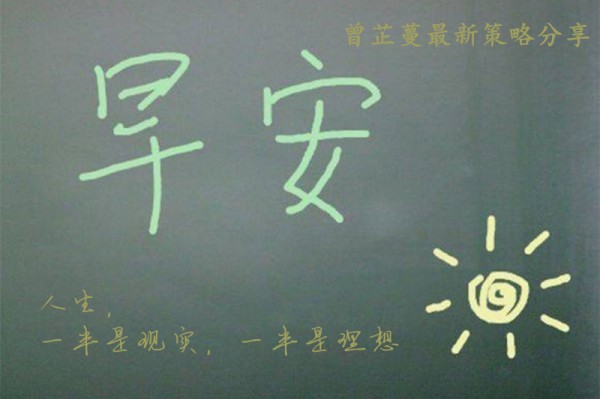 曾芷蔓最新策略分享
早安
人生,
一半是现实,一半是理想